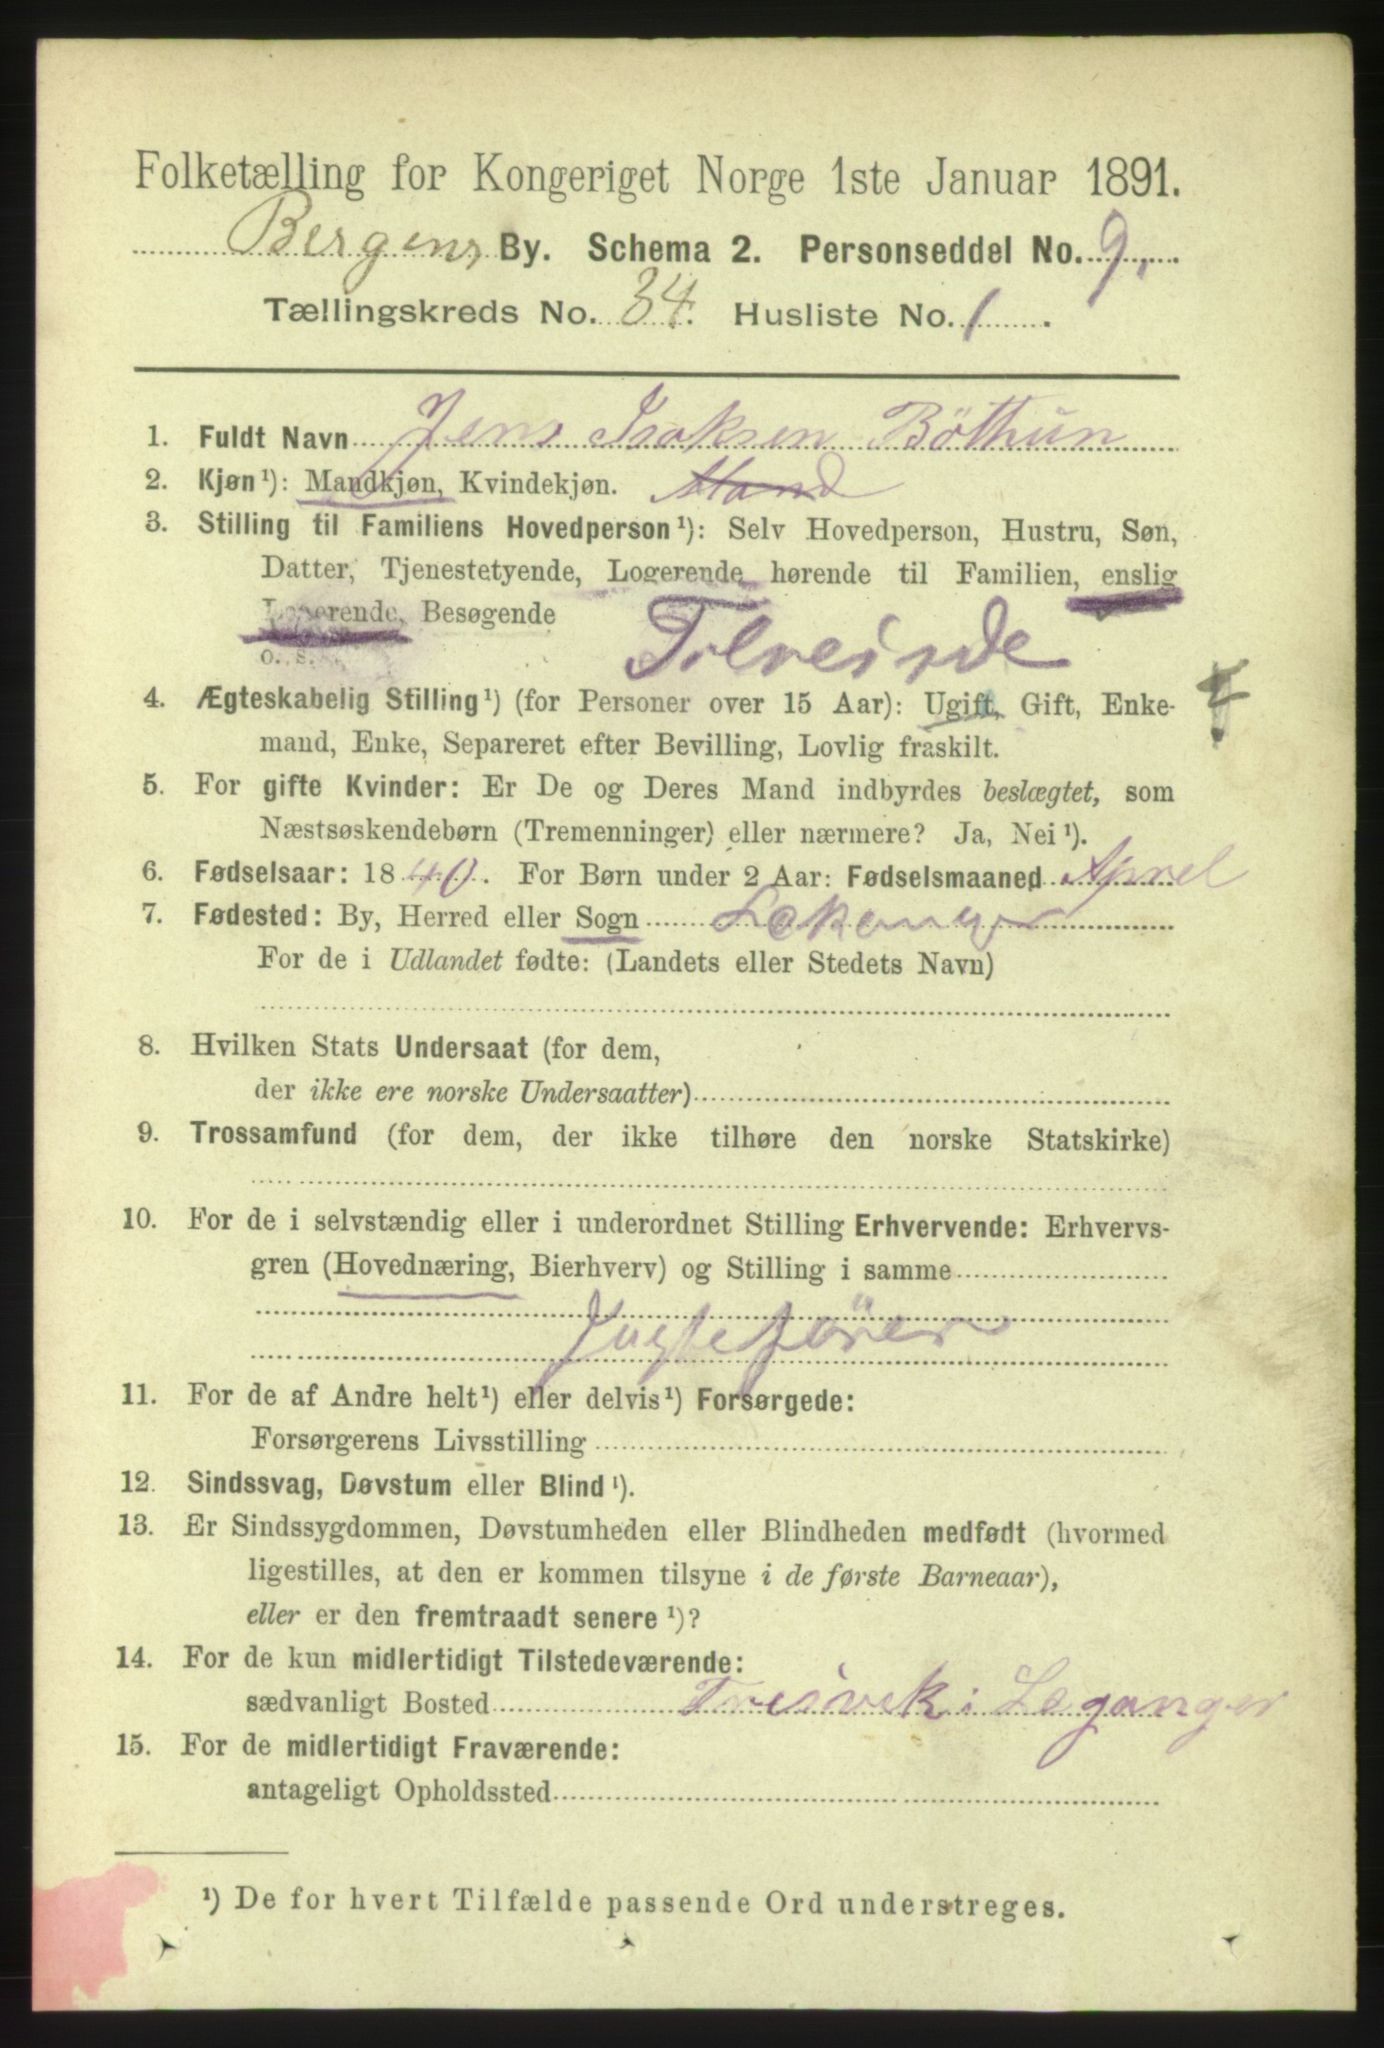 Folketælling for Kongeriget Norge 1ste Januar 1891.
Bergens By. Schema 2. Personseddel No. 9.
Tællingskreds No. 34. Husliste No. 1.
1. Fuldt Navn Jens Isaksen Böthun
2. Kjøn¹): Mandkjøn, Kvindekjøn. Mand
3. Stilling til Familiens Hovedperson¹): Selv Hovedperson, Hustru, Søn,
Datter, Tjenestetyende, Logerende hørende til Familien, enslig
Logerende, Besøgende
o. s.
Tilreisnde
4. Ægteskabelig Stilling¹) (for Personer over 15 Aar): Ugift, Gift, Enke-
mand, Enke, Separeret efter Bevilling, Lovlig fraskilt.
5. For gifte Kvinder: Er De og Deres Mand indbyrdes beslægtet, som
Næstsøskendebørn (Tremenninger) eller nærmere? Ja, Nei¹).
6. Fødselsaar: 1840. For Børn under 2 Aar: Fødselsmaaned Aprel
7. Fødested: By, Herred eller Sogn Lekanger
For de i Udlandet fødte: (Landets eller Stedets Navn)
8. Hvilken Stats Undersaat (for dem,
der ikke ere norske Undersaatter)
9. Trossamfund (for dem, der ikke tilhøre den norske Statskirke)
10. For de i selvstændig eller i underordnet Stilling Erhvervende: Erhvervs-
gren (Hovednæring, Bierhverv) og Stilling i samme
Jagtefører
11. For de af Andre helt¹) eller delvis¹) Forsørgede:
Forsørgerens Livsstilling
12. Sindssvag, Døvstum eller Blind¹).
13. Er Sindssygdommen, Døvstumheden eller Blindheden medfødt (hvormed
ligestilles, at den er kommen tilsyne i de første Barneaar),
eller er den fremtraadt senere¹)?
14. For de kun midlertidigt Tilstedeværende:
sædvanligt Bosted i Leganger
15. For de midlertidigt Fraværende:
antageligt Opholdssted
¹) De for hvert Tilfælde passende Ord understreges.